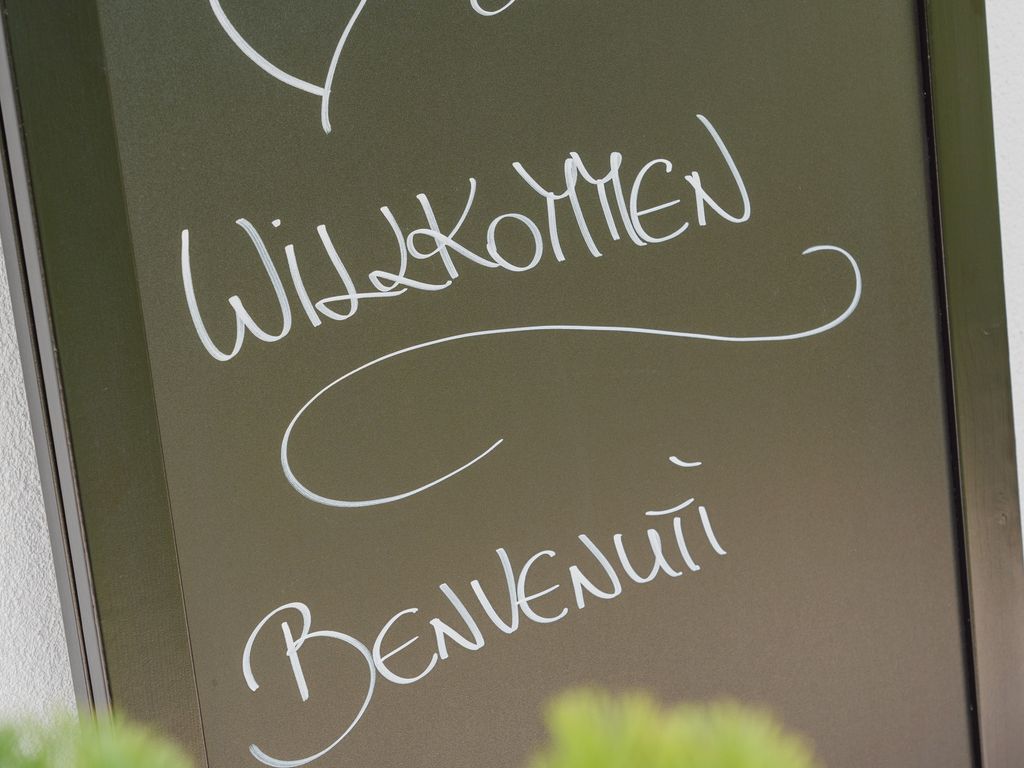 WiLLKOMMEN
BENVENUTI